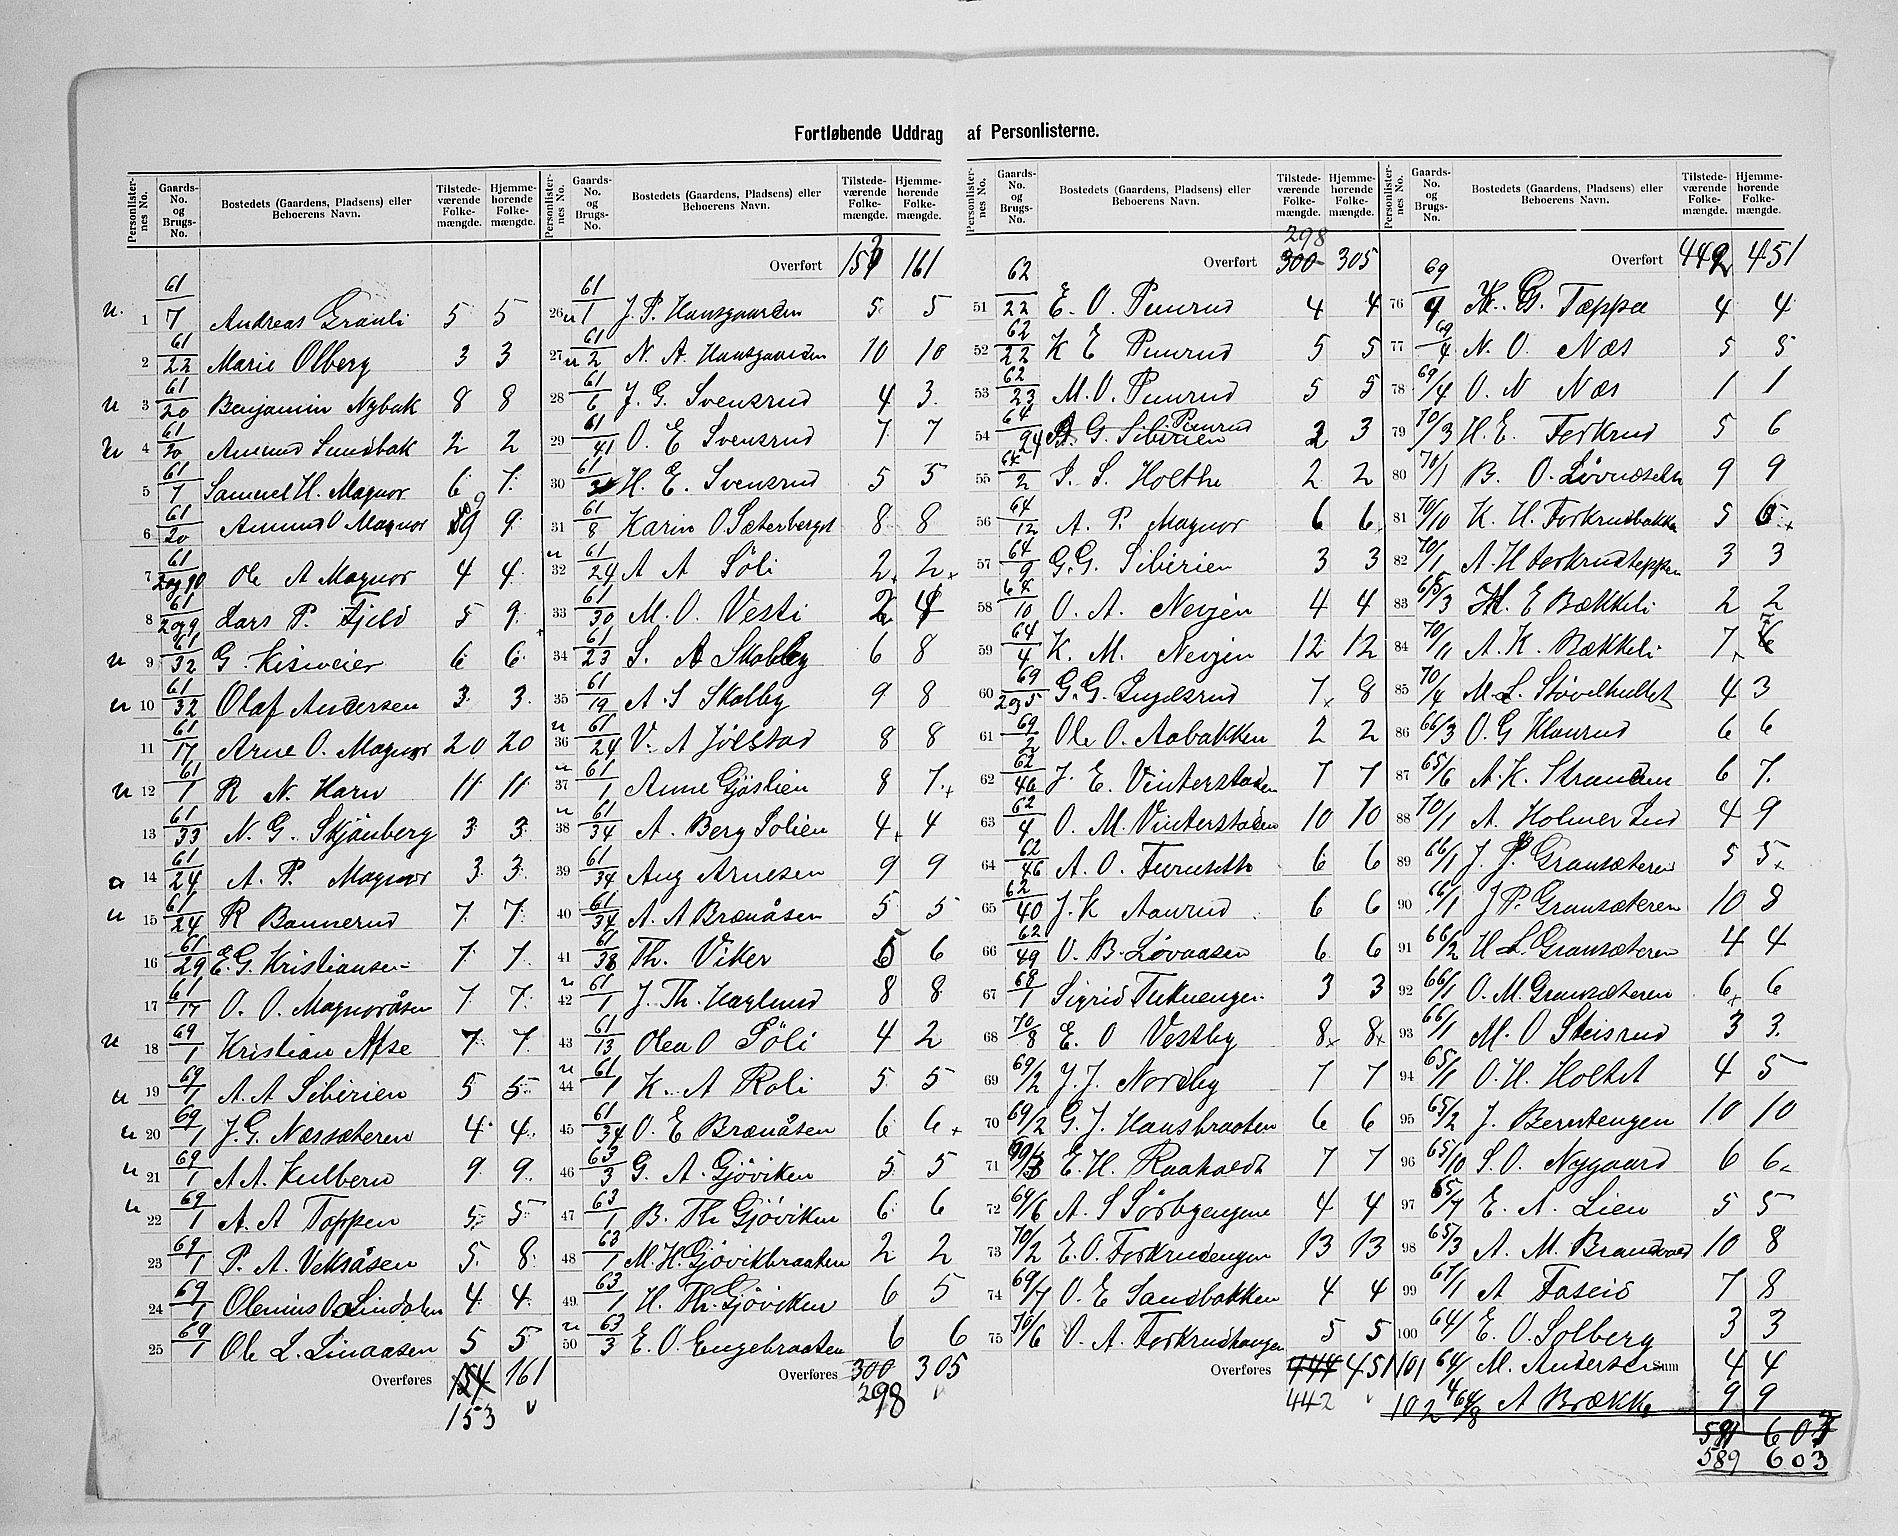 Fortløbende Uddrag af Personlisterne.
Personlister-nes No. Gaards-No. og Brugs-No. Bostedets (Gaardens, Pladsens) eller Beboerens Navn. Tilstede-værende Folke-mængde. Hjemme-hørende Folke-mængde.
1 61/7 Andreas Granli 5 5
2 61/22 Marie Olberg 3 3
3 61/20 Benjamin Nybak 8 8
4 61/20 Amund Sundbak 2 2
5 61/7 Samuel H. Magnor 6 7
6 61/20 Amund O Magnor 9 9
7 61/20 og 90 Ole A Magnor 4 4
8 61/20 9 Lars P. Fjeld 5 9
9 61/32 G. Kisweier 6 6
10 61/32 Olaf Andersen 3 3
11 61/17 Arne O. Magnor 20 20
12 61/1 R N. Harn 11 11
13 61/33 N. G. Skjønberg 3 3
14 61/24 A. P. Magnor 3 3
15 61/24 R Bannerud 7 7
16 61/29 E. G. Kristiansen 7 7
17 61/17 O. O. Magnoråsen 7 7
18 69/1 Kristian Mose 7 7
19 69/1 A. A Siberien 5 5
20 69/1 J. G. Næssæteren 4 4
21 69/1 A A. Kulbern 9 9
22 69/1 A. A Tappen 5 5
23 69/1 P. A. Veksåsen 5 8
24 69/1 Olenius O Lindolen 4 4
25 69/1 Ole L. Linaasen 5 5
Overføres 154 161
153
Personlister-nes No. Gaards-No. og Brugs-No. Bostedets (Gaardens, Pladsens) eller Beboerens Navn. Tilstede-værende Folke-mængde. Hjemme-hørende Folke-mængde.
Overført 153 161
26 61/1 J. P. Hansgaarden 5 5
27 61/2 N. A. Hansgaarden 10 10
28 61/6 J. G. Svensrud 4 3
29 61/41 O. E Svensrud 7 7
30 61/3 H. E. Svensrud 5 5
31 61/8 Karin O. Sæterberget 8 8
32 61/24 A A Söli 2 2
33 61/30 M. O. Vesti 2 4
34 61/23 S. A Skolbey 6 8
35 61/19 A. S Skolby 9 8
36 61/24 V. A Jölstad 8 8
37 61/1 Anne Gjöslien 8 7
38 61/34 A. Berg Solien 4 4
39 61/34 Aug Arnesen 9 9
40 61/34 A. A Brænåsen 5 5
41 61/38 Th. Viker 5 6
42 61/1 J. Th. Haglund 8 8
43 61/13 Olea O Söli 4 2
44 61/1 K. A Roli 5 5
45 61/34 O. E Brænåsen 6 6
46 63/3 G. A. Gjöviken 5 5
47 63/1 B. Th Gjöviken 6 6
48 63/1 M. H. Gjövikbraaten 2 2
49 63/1 H. Th. Gjöviken 6 5
50 63/3 E. O. Engebraaten 6 6
Overføres 300 305
298
Personlister-nes No. Gaards-No. og Brugs-No. Bostedets (Gaardens, Pladsens) eller Beboerens Navn. Tilstede-værende Folke-mængde. Hjemme-hørende Folke-mængde.
298
Overført 300 305
51 62/22 E. O. Punrud 4 4
52 62/22 K E Punrud 5 5
53 62/23 M. O. Punrud 5 5
54 64/24 G. Siberien Punrud 2 3
55 64/2 I. S. Holthe 2 2
56 64/12 A. P. Magnor 6 6
57 64/9 G. G. Siberien 3 3
58 64/10 O. A. Nevjen 4 4
59 64/4 K. M. Nevjen 12 12
60 69/2 og 5 G. G. Ingelsrud 7 8
61 69/2 Ole O. Aabakken 2 2
62 62/46 J. E. Vinterstaden 7 7
63 62/4 O. M. Vinterstaden 10 10
64 62/46 A. O. Furuseth 6 6
65 62/40 J. K Aanrud 6 6
66 62/49 O. B. Løvaasen 6 6
67 68/1 Sigrid Tukuengen 3 3
68 70/8 E. O Vestby 8 8
69 69/2 J. J. Nordby 7 7
70 69/2 G. J. Hansbraaten 6 6
71 99/3 E. H. Raaholdt 7 7
72 69/6 A. S Sörbyengene 4 4
73 70/2 E. O. Forkrudengen 13 13
74 69/7 O. E Sandbakken 4 4
75 70/6 O. A. Forkrudhaugen 5 5
Overføres 444 451
442
Personlister-nes No. Gaards-No. og Brugs-No. Bostedets (Gaardens, Pladsens) eller Beboerens Navn. Tilstede-værende Folke-mængde. Hjemme-hørende Folke-mængde.
Overført 442 451
76 69/9 H. G. Tæppa 4 4
77 69/4 N. O. Næs 5 5
78 69/4 O. N Næs 1 1
79 70/3 H. E. Forkrud 5 6
80 70/1 B. O. Løvnæseln 9 9
81 70/10 K. H. Forkrudbakken 5 6
82 70/1 A. H Forkrudteppen 3 3
83 65/3 H. E Bækkeli 2 2
84 70/11 A. K. Bækkeli 7 7
85 70/4 M. L. Støvelhultet 4 3
86 66/3 O. G Klanrud 6 6
87 65/6 A. K. Stranden 6 7
88 70/1 A. Holmer Lud 4 9
89 66/1 J. J. Gransæteren 5 5
90 66/1 J P. Gransæteren 10 8
91 66/2 H L. Gransæteren 4 4
92 66/1 O. M. Gransæteren 6 6
93 66/1 M. O Steisrud 3 3
94 65/1 O. H. Holtet 4 5
95 65/2 J. Berntengen 10 10
96 65/10 S. O. Nygaard 6 6
97 65/7 E. A. Lien 5 5
98 65/3 A. M. Brandvold 10 8
99 67/1 A Faseid 7 8
100 64/1 E. O. Solberg 3 3
101 64/1 M. Andersen Sum 4 4
102 64/8 A Brække 9 9
591 603
589 603